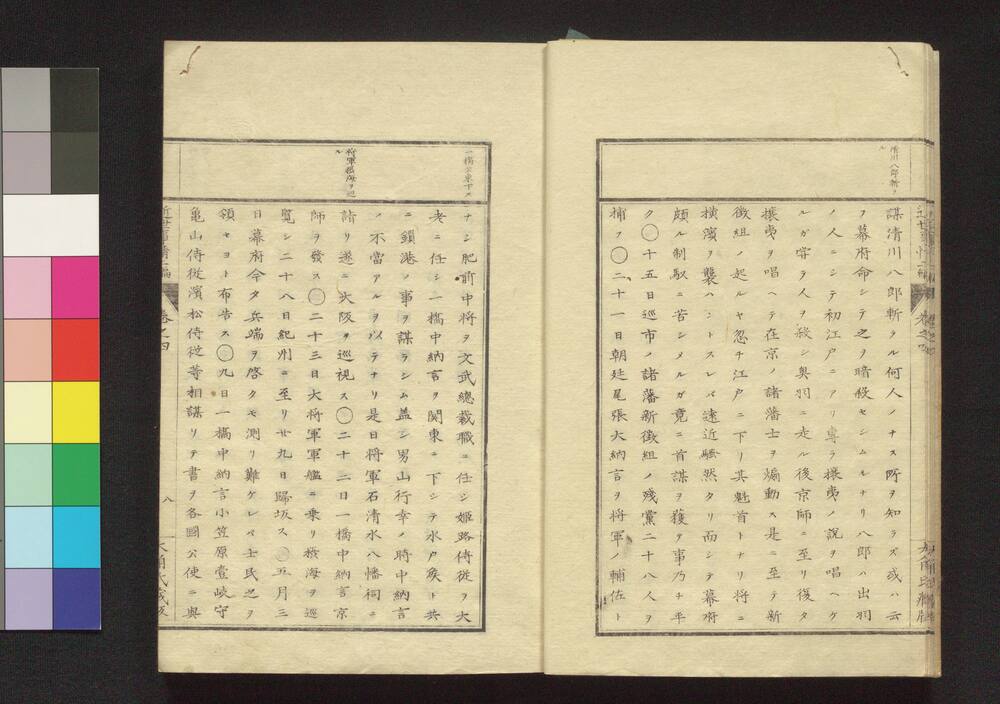 清川八郎斬ラル
謀清川八郎斬ラル何人ノナス所ヲ知ラズ或ハ云
フ幕府命シテ之ヲ暗殺セシムルナリ八郎ハ出羽
ノ人ニシテ初江戸ニアリ専ラ攘夷ノ説ヲ唱ヘケ
ルガ甞ヲ人ヲ殺シ奥羽ニ走ル後京師ニ至リ復タ
攘夷ヲ唱ヘテ在京ノ諸藩士ヲ煽動ス是ニ至テ新
徴組ノ起ルヤ忽チ江戸ニ下リ其魁首トナリ将ニ
横濱ヲ襲ハントスレバ遠近騒然タリ而シテ幕府
頗ル制馭ニ苦シメルガ竟ニ首謀ヲ獲テ事乃チ平
ク〇十五日巡市ノ諸藩新徴組ノ残黨二十八人ヲ
捕フ〇二十一日朝廷尾張大納言ヲ将軍ノ輔佐ト
近世事情二編 巻之四
一橋公東下ス
将軍摂海ヲ巡ル
ナシ肥前中将ヲ文武總裁職ニ任シ姫路侍従ヲ大
老ニ任シ一橋中納言ヲ関東ニ下シテ水戸矦ト共
ニ鎖港ノ事ヲ謀ラシム蓋シ男山行幸ノ時中納言
ノ不當アルヲ以テナリ是日将軍石清水八幡祠ニ
詣リ遂ニ大阪ヲ巡視ス〇二十二日一橋中納言京
師ヲ發ス〇二十三日大将軍軍艦ニ乗リ摂海ヲ巡
覧シ二十八日紀州ニ至リ廿九日歸坂ス〇五月三
日幕府今タ兵端ヲ啓クモ測リ難ケレバ士民之ヲ
領セヨト布告ス〇九日一橋中納言小笠原壹岐守
亀山侍従濱松侍従等相謀リテ書ヲ各國公使ニ與
近世事情二編 巻之四 八